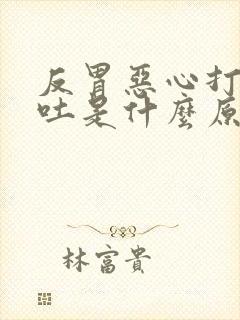 反胃惡心打
吐是什麼原
林富貴